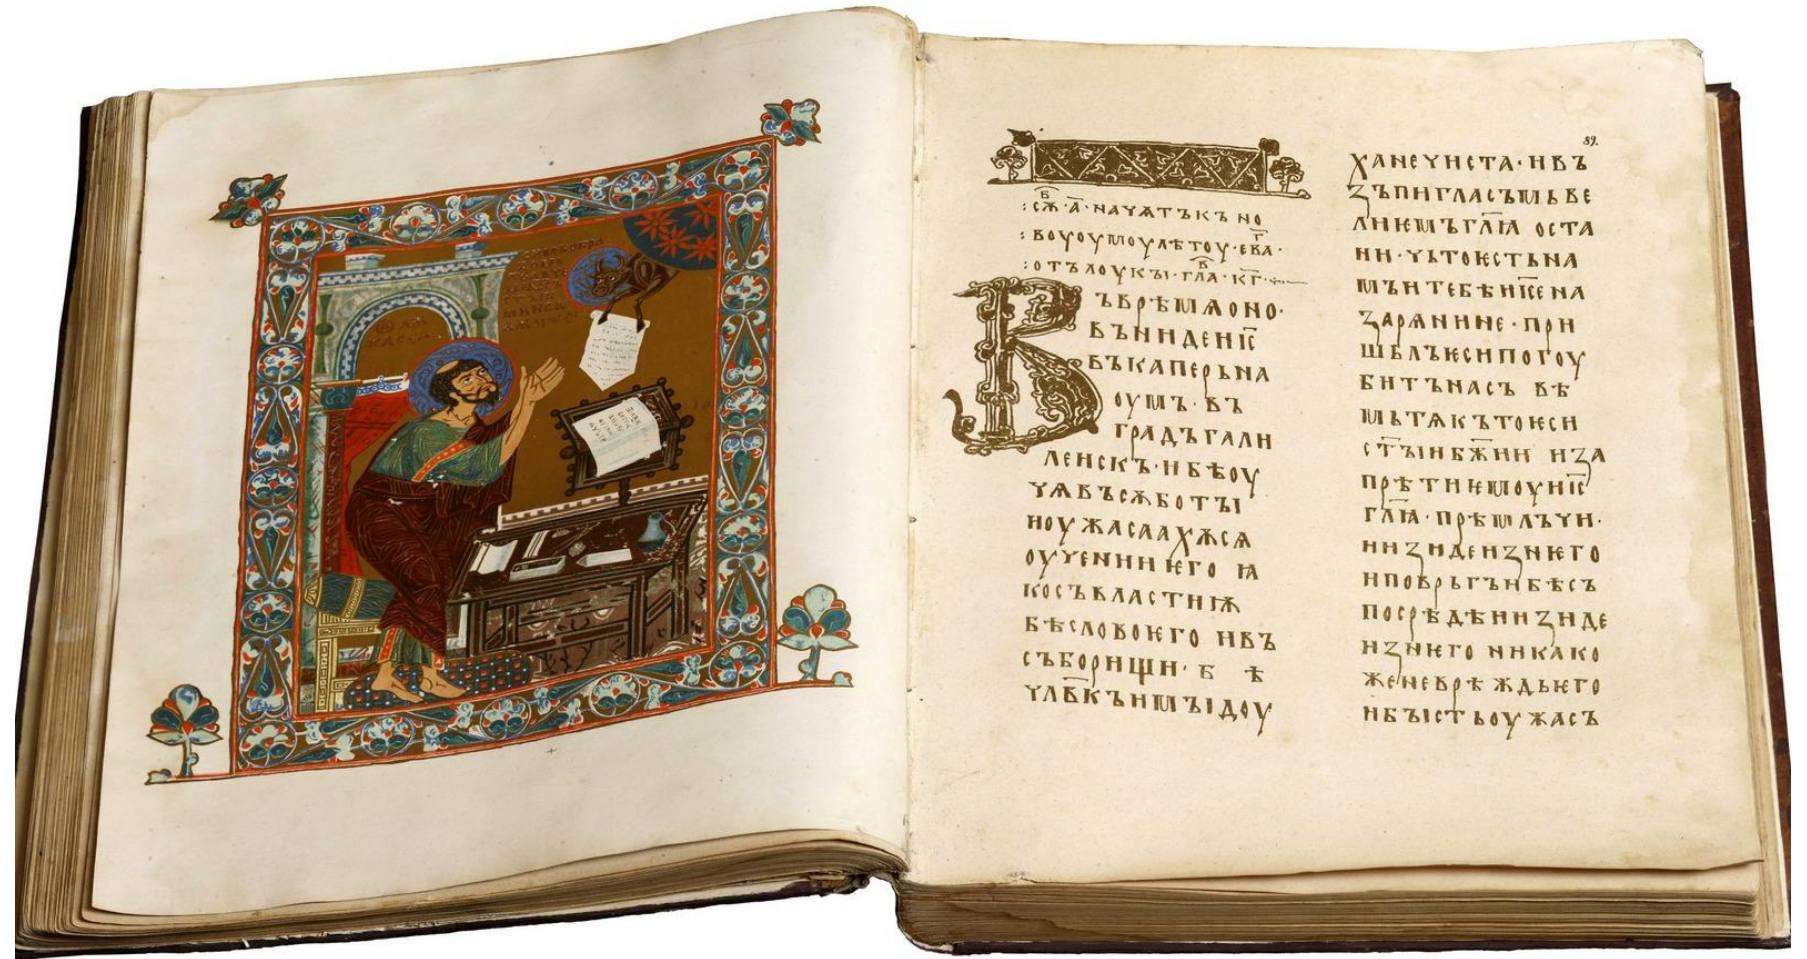 89.
:сѫ҃б·а҃·начѧтъкъ но
:воуоумоулѣтоу·ева҃г·
:отълоукꙑ·гла҃в·к҃г·
Въврѣмѧоно·
въниде и҃с
въкаперьна
оумъ·въ
градъгали
леискъ·ибѣоу
чѧвъсѫботꙑ
иоужасаахѫсѧ
оучениинѥго ꙗ
косъвластиѭ
бѣсловоѥго ивъ
съборищи·б ѣ
чл҃вкъимꙑдоу
ханечиста·ивъ
зъпигласъмьве
лиѥмъгл҃ꙗ оста
ни·чьтоѥстьна
мъитебѣи҃сена
зарѧнине·при
шьлъѥсипогоу
битънасъ вѣ
мьтѧкътоѥси
ст҃ꙑиб҃жии иза
прѣтиѥмоуи҃с
гл҃ꙗ·прѣмлъчи·
иизидеизнѥго
иповрьгъибѣсъ
посрѣдѣиизиде
изнѥго никако
женеврѣждьѥго
ибꙑстьоужасъ